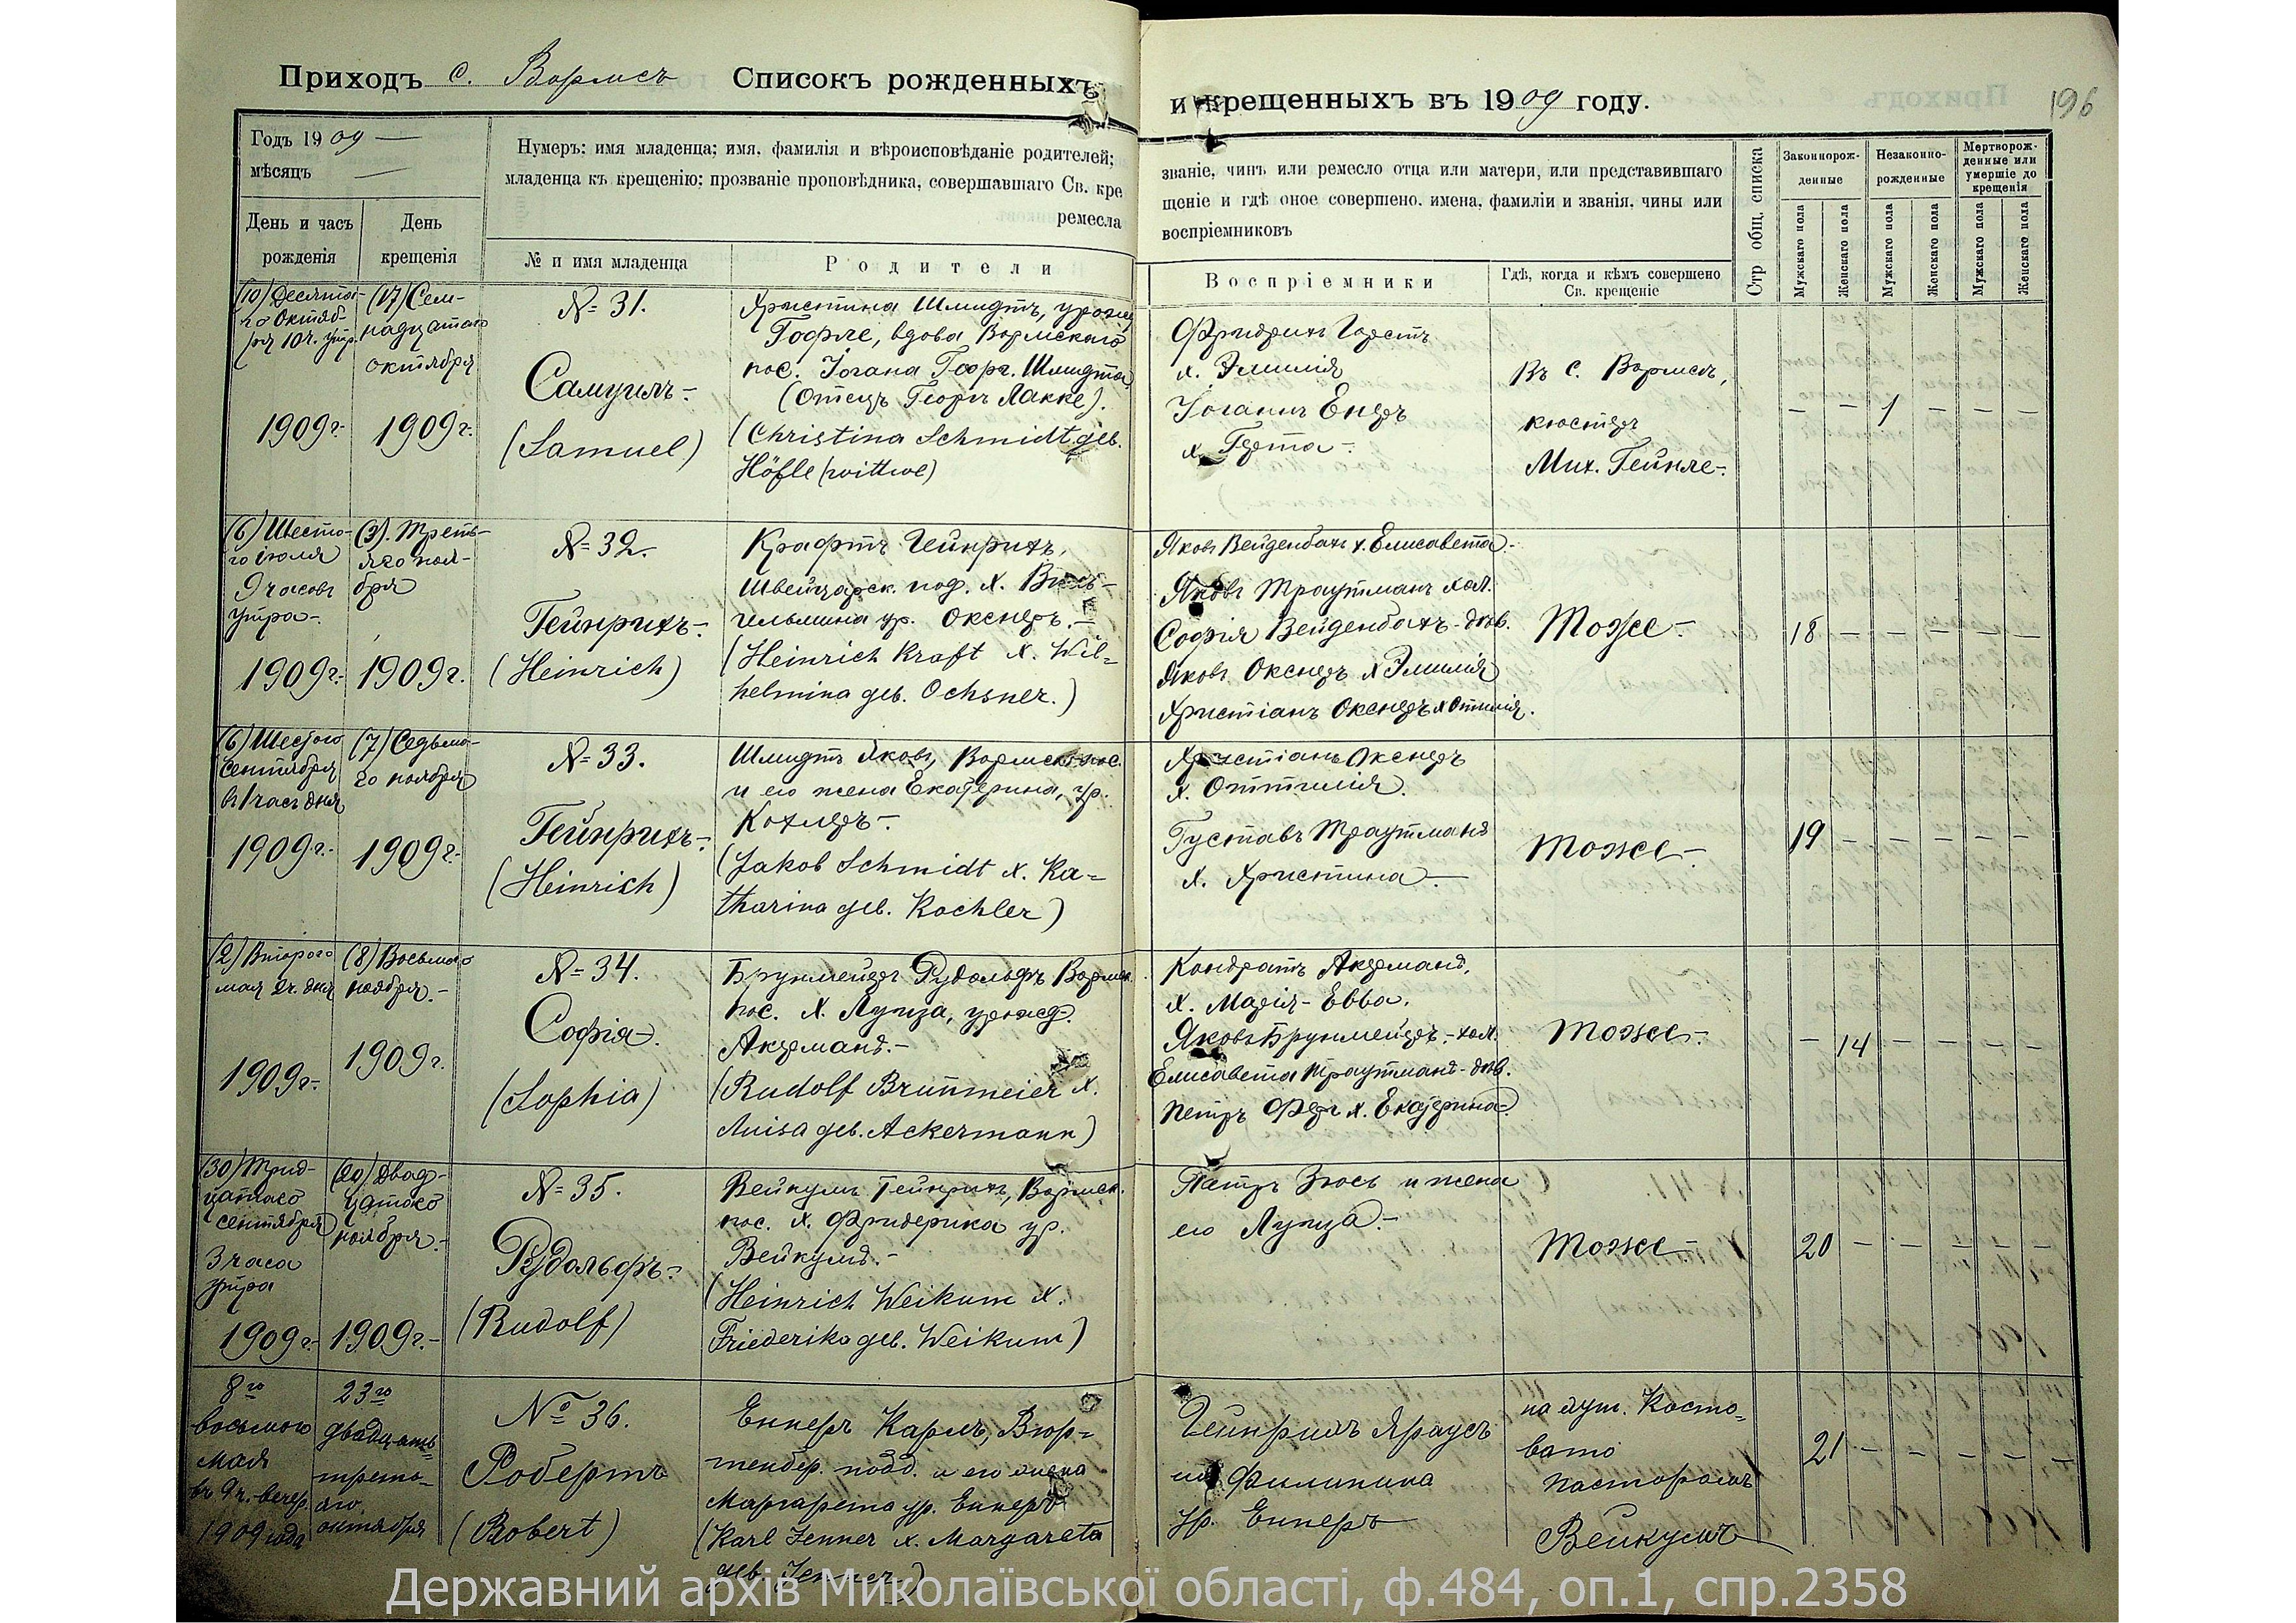 Приходъ с. Вормсъ Списокъ рожденныхъ
и крещенныхъ въ 1909 году.
196
Годъ 1909 —
мѣсяцъ —
День и часъ
рожденія
День
крещенія
Нумеръ; имя младенца; имя, фамилія и вѣроисповѣданіе родителей;
младенца къ крещенію; прозваніе проповѣдника, совершавшаго Св. кре
ремесла
№ и имя младенца
Родители
званіе, чинъ или ремесло отца или матери, или представившаго
щеніе и гдѣ оное совершено, имена, фамиліи и званія, чины или
воспріемниковъ
Воспріемники
Гдѣ, когда и кѣмъ совершено
Св. крещеніе
Стр общ. списка
Законнорож-
денные
Незаконно-
рожденные
Мертворож-
денные или
умершіе до
крещенія
Мужскаго пола
Женскаго пола
Мужскаго пола
Женскаго пола
Мужскаго пола
Женскаго пола
(10) Десята-
го Октяб-
ря 10 ч. утр.
1909 г.
(17) Сем-
надцатаго
октября
1909 г.
№ 31.
Самуилъ
(Samuel)
Христина Шмидтъ, урожд
Гофле, вдова Вормскаго
пос. Іогана Георг. Шмидта
(Отецъ Георгъ Лакке).
(Christina Schmidt geb.
Höfle (wittwe)
Фридрихъ Горстъ
х. Эмилія
Іоганъ Енеръ
х. Берта
Въ с. Вормсъ,
кюстеръ
Мих. Гейнле
— — 1 — — —
(6) Шесто-
го іюля
9 часовъ
утра
1909 г.
(3). Треть-
яго ноя-
бря
1909 г.
№ 32.
Гейнрихъ
(Heinrich)
Крафтъ Гейнрихъ,
Швейцарск. под. х. Виль-
гельмина ур. Окснеръ.
(Heinrich Kraft x. Wil=
helmina geb. Ochsner.)
Яковъ Вейденбахъ х. Елисавета
Яковъ Траутманъ хол.
Софія Вейденбахъ - дѣв.
Яковъ Окснеръ х Эмилія
Христіанъ Окснеръ х Отилія.
Тоже
18 — — — — —
(6) Шестого
Сентября
въ 1 часъ дня
1909 г.
(7) Седьмо-
го ноября
1909 г.
№ 33.
Гейнрихъ
(Heinrich)
Шмидтъ Яковъ, Вормск. пос.
и его жена Екатерина, ур.
Кохлеръ
(Jakob Schmidt x. Ka=
tharina geb. Kochler)
Христіанъ Окснеръ
х. Оттилія.
Густавъ Траутманъ
х. Христина
Тоже
19 — — — — —
(2) Второго
мая 2 ч. дня
1909 г.
(8) Восьмаго
ноября.
1909 г.
№ 34.
Софія
(Sophia)
Брунмейеръ Рудольфъ Вормск.
пос. х. Луиза, урожд.
Акерманъ.
(Rudolf Brunmeier x.
Luisa geb. Ackermann)
Кондратъ Акерманъ,
х. Марія-Евва.
Яковъ Брунмейеръ - хол.
Елисавета Траутманъ - дѣв.
Петръ Феръ х. Екатерина
Тоже
— 14 — — — —
(30) Трид-
цатаго
сентября
3 часа
утра
1909 г.
(20) Двад-
цатаго
ноября.
1909 г.
№ 35.
Рудольфъ
(Rudolf)
Вейкумъ Гейнрихъ, Вормск.
пос. х. Фридерика ур.
Вейкумъ.
(Heinrich Weikum x.
Friederika geb. Weikum)
Петръ Зюсъ и жена
его Луиза.
Тоже
20 — — — — —
8го
восьмого
мая
въ 9 ч. вечер.
1909 года
23го
двадцать
третья-
аго
октября
№ 36.
Робертъ
(Robert)
Еннеръ Карлъ, Вюр=
тембер. подд. и его жена
Маргарета ур. Еннеръ
(Karl Jenner x. Margareta
geb. Jenner)
Гейнрихъ Краусъ
Филипина
ур. Еннеръ
на хут. Косто=
вато
пасторомъ
Вейкумъ
21 — — — — —
Державний архів Миколаївської області, ф.484, оп.1, спр.2358